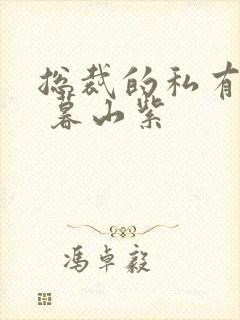 总裁的私有
暮山紫
冯卓毅